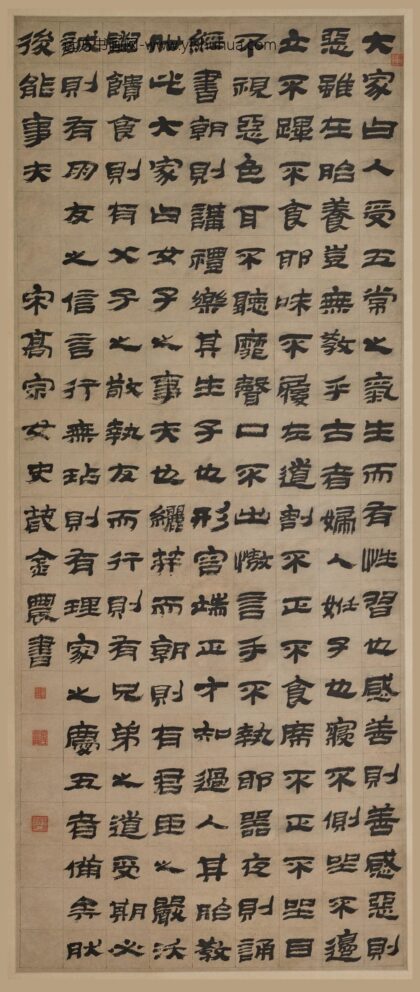 大家曰人受五常之氣生而有性習也感善則善感惡則
惡雖在胎養豈無教乎古者婦人妊子也寢不側坐不邊
立不蹕不食邪味不履左道割不正不食席不正不坐目
不視惡色耳不聽靡聲口不出傲言手不執邪器夜則誦
經書朝則講禮樂其生子也形容端正才知過人其胎教
如此大家曰女子之事夫也纚笄而朝則有君臣之嚴沃
盥饋食則有父子之敬報反而行則有兄弟之道受期必
誠則有朋友之信言行無玷則有理家之慶五者備矣然
後能事夫 宋高宗女史箴金農書